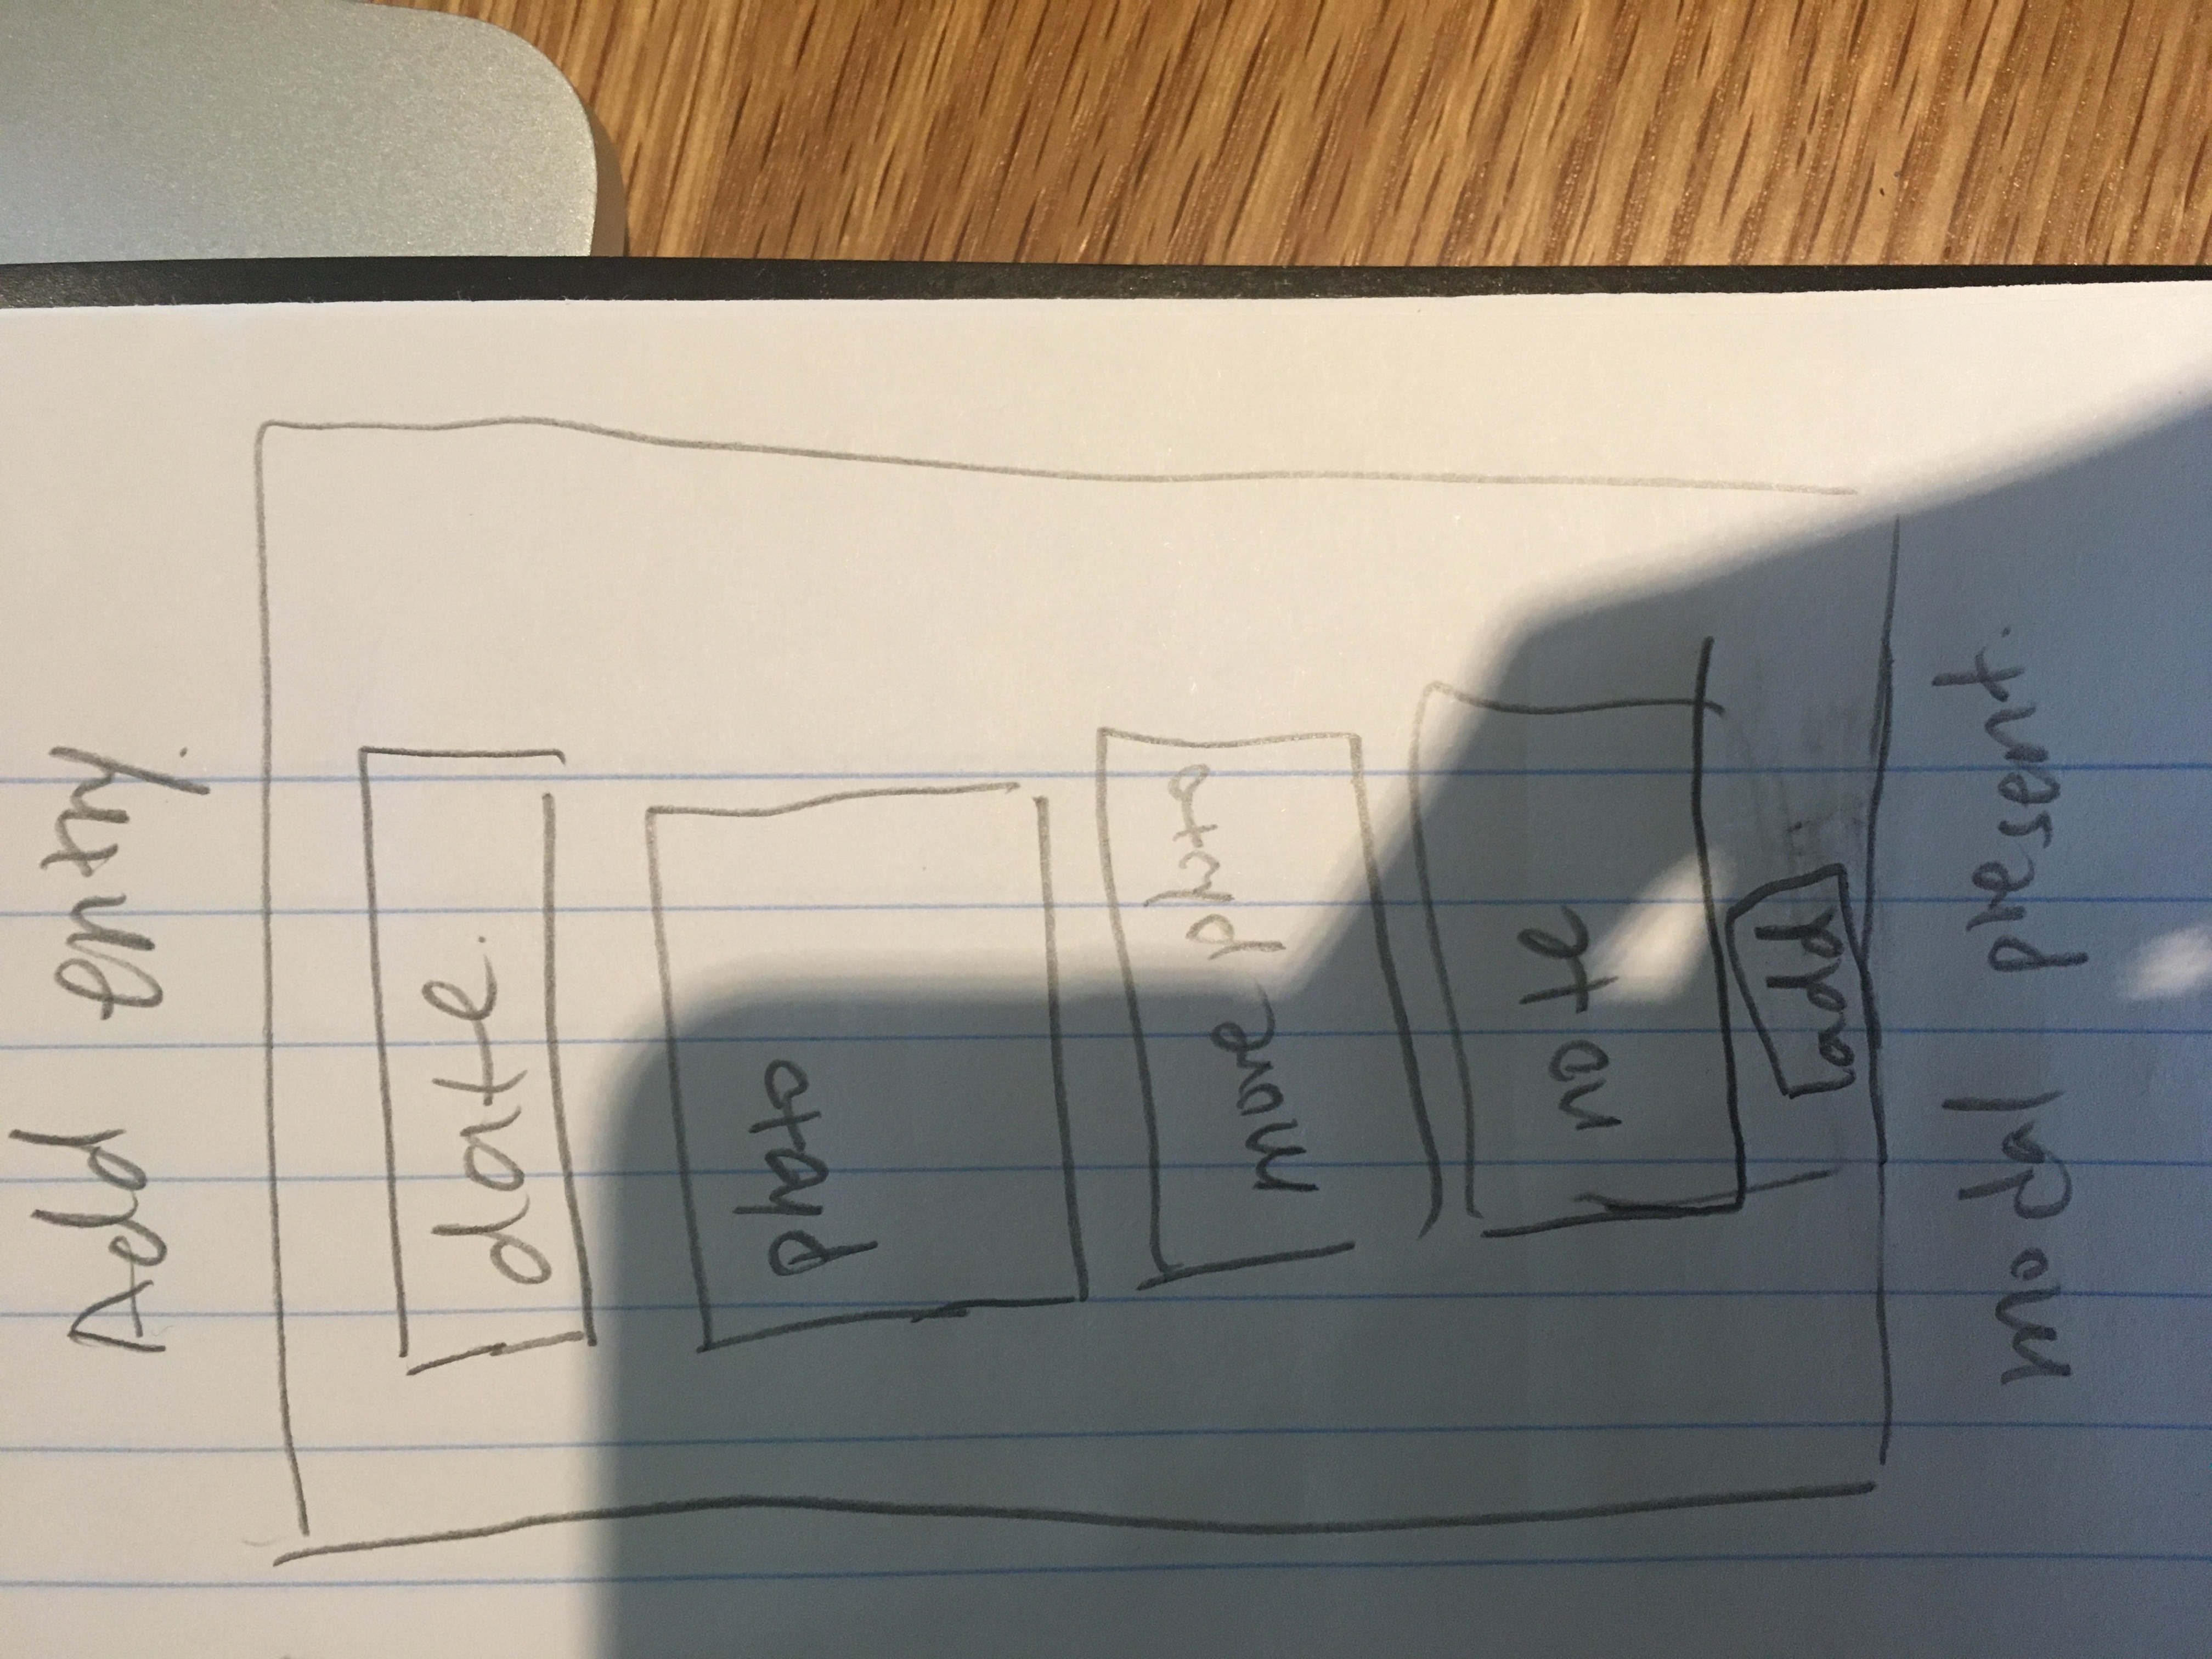 Add entry.
date.
photo
more photo
note
add
modal present.